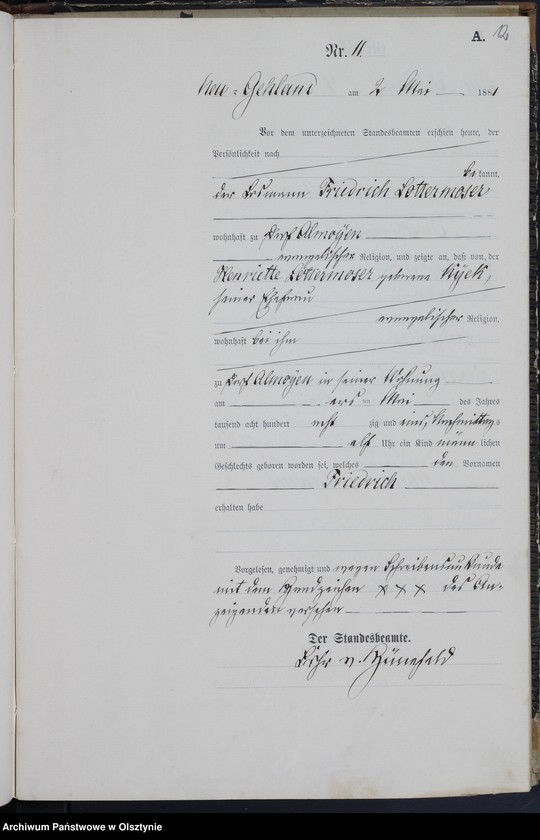 A. 12
Nr. 11.
Neu-Gehland am 2 Mai 1881
Vor dem unterzeichneten Standesbeamten erschien heute, der
Persönlichkeit nach
bekannt,
der Losmann Friedrich Lottermoser
wohnhaft zu Dorf Almoyen
evangelischer Religion, und zeigte an, daß von der
Henriette Lottermoser geborene Kyek,
seiner Ehefrau
evangelischer Religion,
wohnhaft bei ihm
zu Dorf Almoyen in seiner Wohnung
am ersten Mai des Jahres
tausend acht hundert achtzig und eins, Nachmittags
um elf Uhr ein Kind männlichen
Geschlechts geboren worden sei, welches den Vornamen
Friedrich
erhalten habe
Vorgelesen, genehmigt und wegen Schreibensunkunde
mit dem Handzeichen x x x des An-
zeigenden versehen
Der Standesbeamte.
v. Hünefeld
Archiwum Państwowe w Olsztynie